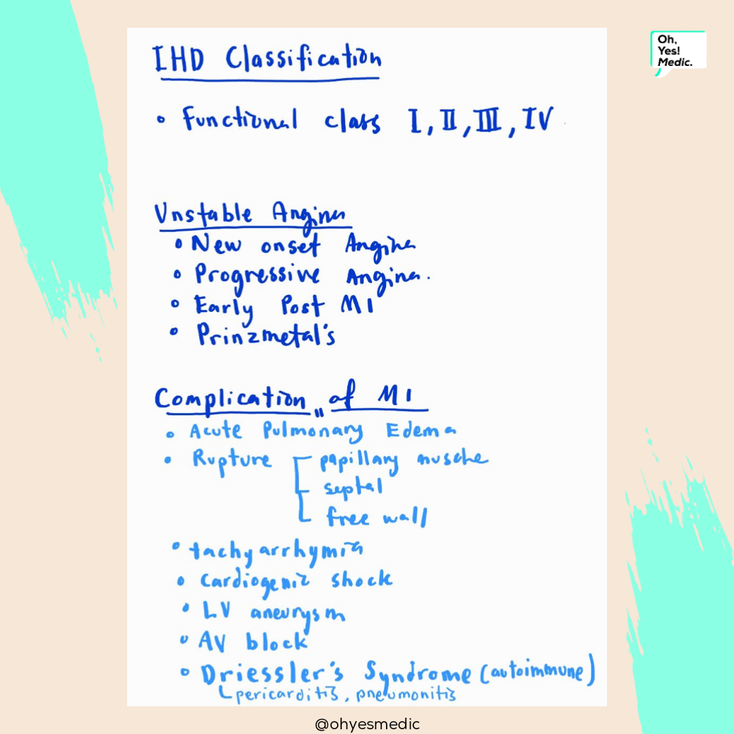 Oh,
Yes!
Medic.
IHD Classification
• Functional class I, II, III, IV
Unstable Angina
• New onset Angina
• Progressive Angina.
• Early Post MI
• Prinzmetal's
Complication of MI
• Acute Pulmonary Edema
• Rupture papillary muscle
septal
free wall
• tachyarrhymia
• cardiogenic shock
• LV aneurysm
• AV block
• Driessler's Syndrome (autoimmune)
pericarditis, pneumonitis
@ohyesmedic